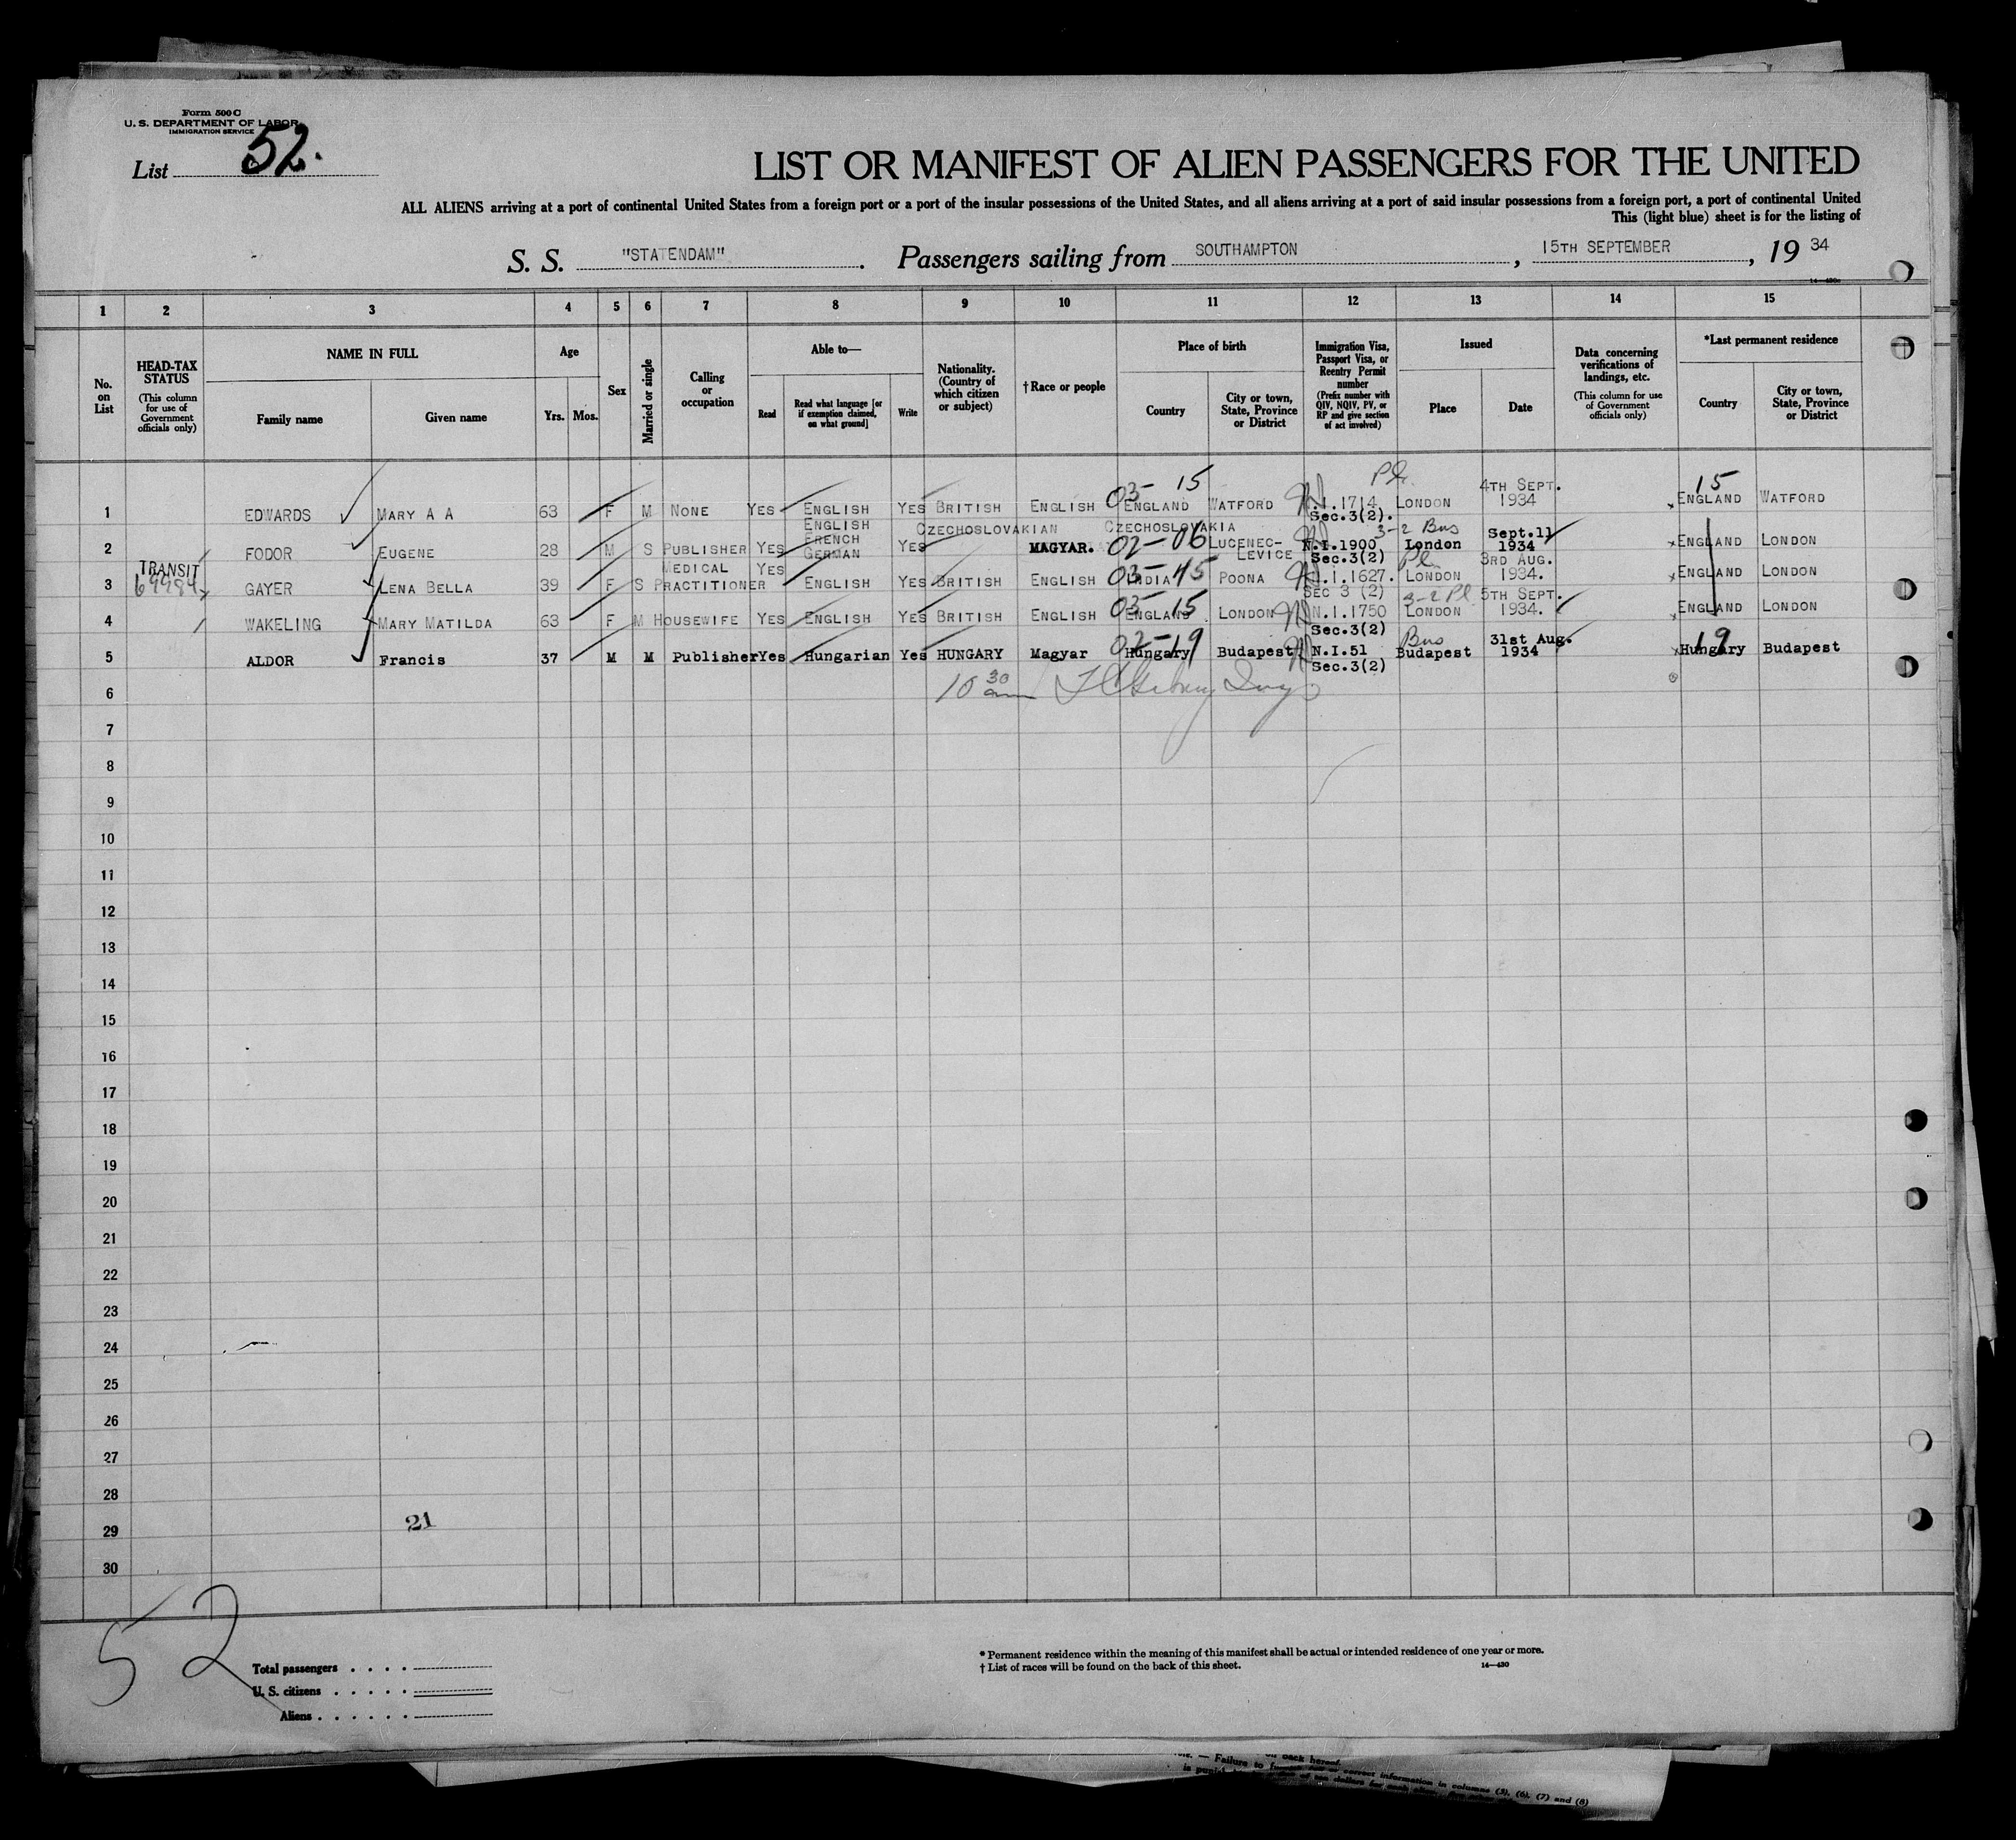 Form 500 C
U. S. DEPARTMENT OF LABOR
IMMIGRATION SERVICE
List 52.
LIST OR MANIFEST OF ALIEN PASSENGERS FOR THE UNITED
ALL ALIENS arriving at a port of continental United States from a foreign port or a port of the insular possessions of the United States, and all aliens arriving at a port of said insular possessions from a foreign port, a port of continental United
This (light blue) sheet is for the listing of
S. S. "STATENDAM". Passengers sailing from SOUTHAMPTON, 15TH SEPTEMBER, 19 34
1 2 3 4 5 6 7 8 9 10 11 12 13 14 15
No. on List
HEAD-TAX STATUS (This column for use of Government officials only)
NAME IN FULL
Family name Given name
Age
Yrs. Mos.
Sex
Married or single
Calling or occupation
Able to—
Read Read what language [or if exemption claimed, on what ground] Write
Nationality. (Country of which citizen or subject)
† Race or people
Place of birth
Country City or town, State, Province or District
Immigration Visa, Passport Visa, or Reentry Permit number (Prefix number with QIV, NQIV, PV, or RP and give section of act involved)
Issued
Place Date
Data concerning verifications of landings, etc. (This column for use of Government officials only)
*Last permanent residence
Country City or town, State, Province or District
03- 15 4TH SEPT. 15
1 EDWARDS MARY A A 63 F M NONE YES ENGLISH YES BRITISH ENGLISH ENGLAND WATFORD N.I.1714 LONDON 1934 ENGLAND WATFORD
Sec.3(2).
ENGLISH CZECHOSLOVAKIAN CZECHOSLOVAKIA 3-2 Bus Sept.11
2 FODOR EUGENE 28 M S PUBLISHER YES FRENCH GERMAN YES MAGYAR. 02-06 LUCENEC-LEVICE N.I.1900 London 1934 ENGLAND LONDON
Sec.3(2)
TRANSIT MEDICAL YES 3RD AUG.
3 GAYER LENA BELLA 39 F S PRACTITIONER ENGLISH YES BRITISH ENGLISH INDIA POONA N.I.1627. LONDON 1934. ENGLAND LONDON
SEC 3 (2) 3-2 Pl 5TH SEPT.
03-15
4 WAKELING MARY MATILDA 63 F M HOUSEWIFE YES ENGLISH YES BRITISH ENGLISH ENGLAND LONDON N.I.1750 LONDON 1934. ENGLAND LONDON
Sec.3(2)
02-19 Bus 31st Aug. 19
5 ALDOR Francis 37 M M Publisher Yes Hungarian Yes HUNGARY Magyar Hungary Budapest N.I.51 Budapest 1934 Hungary Budapest
Sec.3(2)
6 10 30 am
7
8
9
10
11
12
13
14
15
16
17
18
19
20
21
22
23
24
25
26
27
28
29 21
30
52
Total passengers
U. S. citizens
Aliens
* Permanent residence within the meaning of this manifest shall be actual or intended residence of one year or more.
† List of races will be found on the back of this sheet. 14—430
on back hereof.
— Failure to correct information in columns (3), (6), (7) and (8)